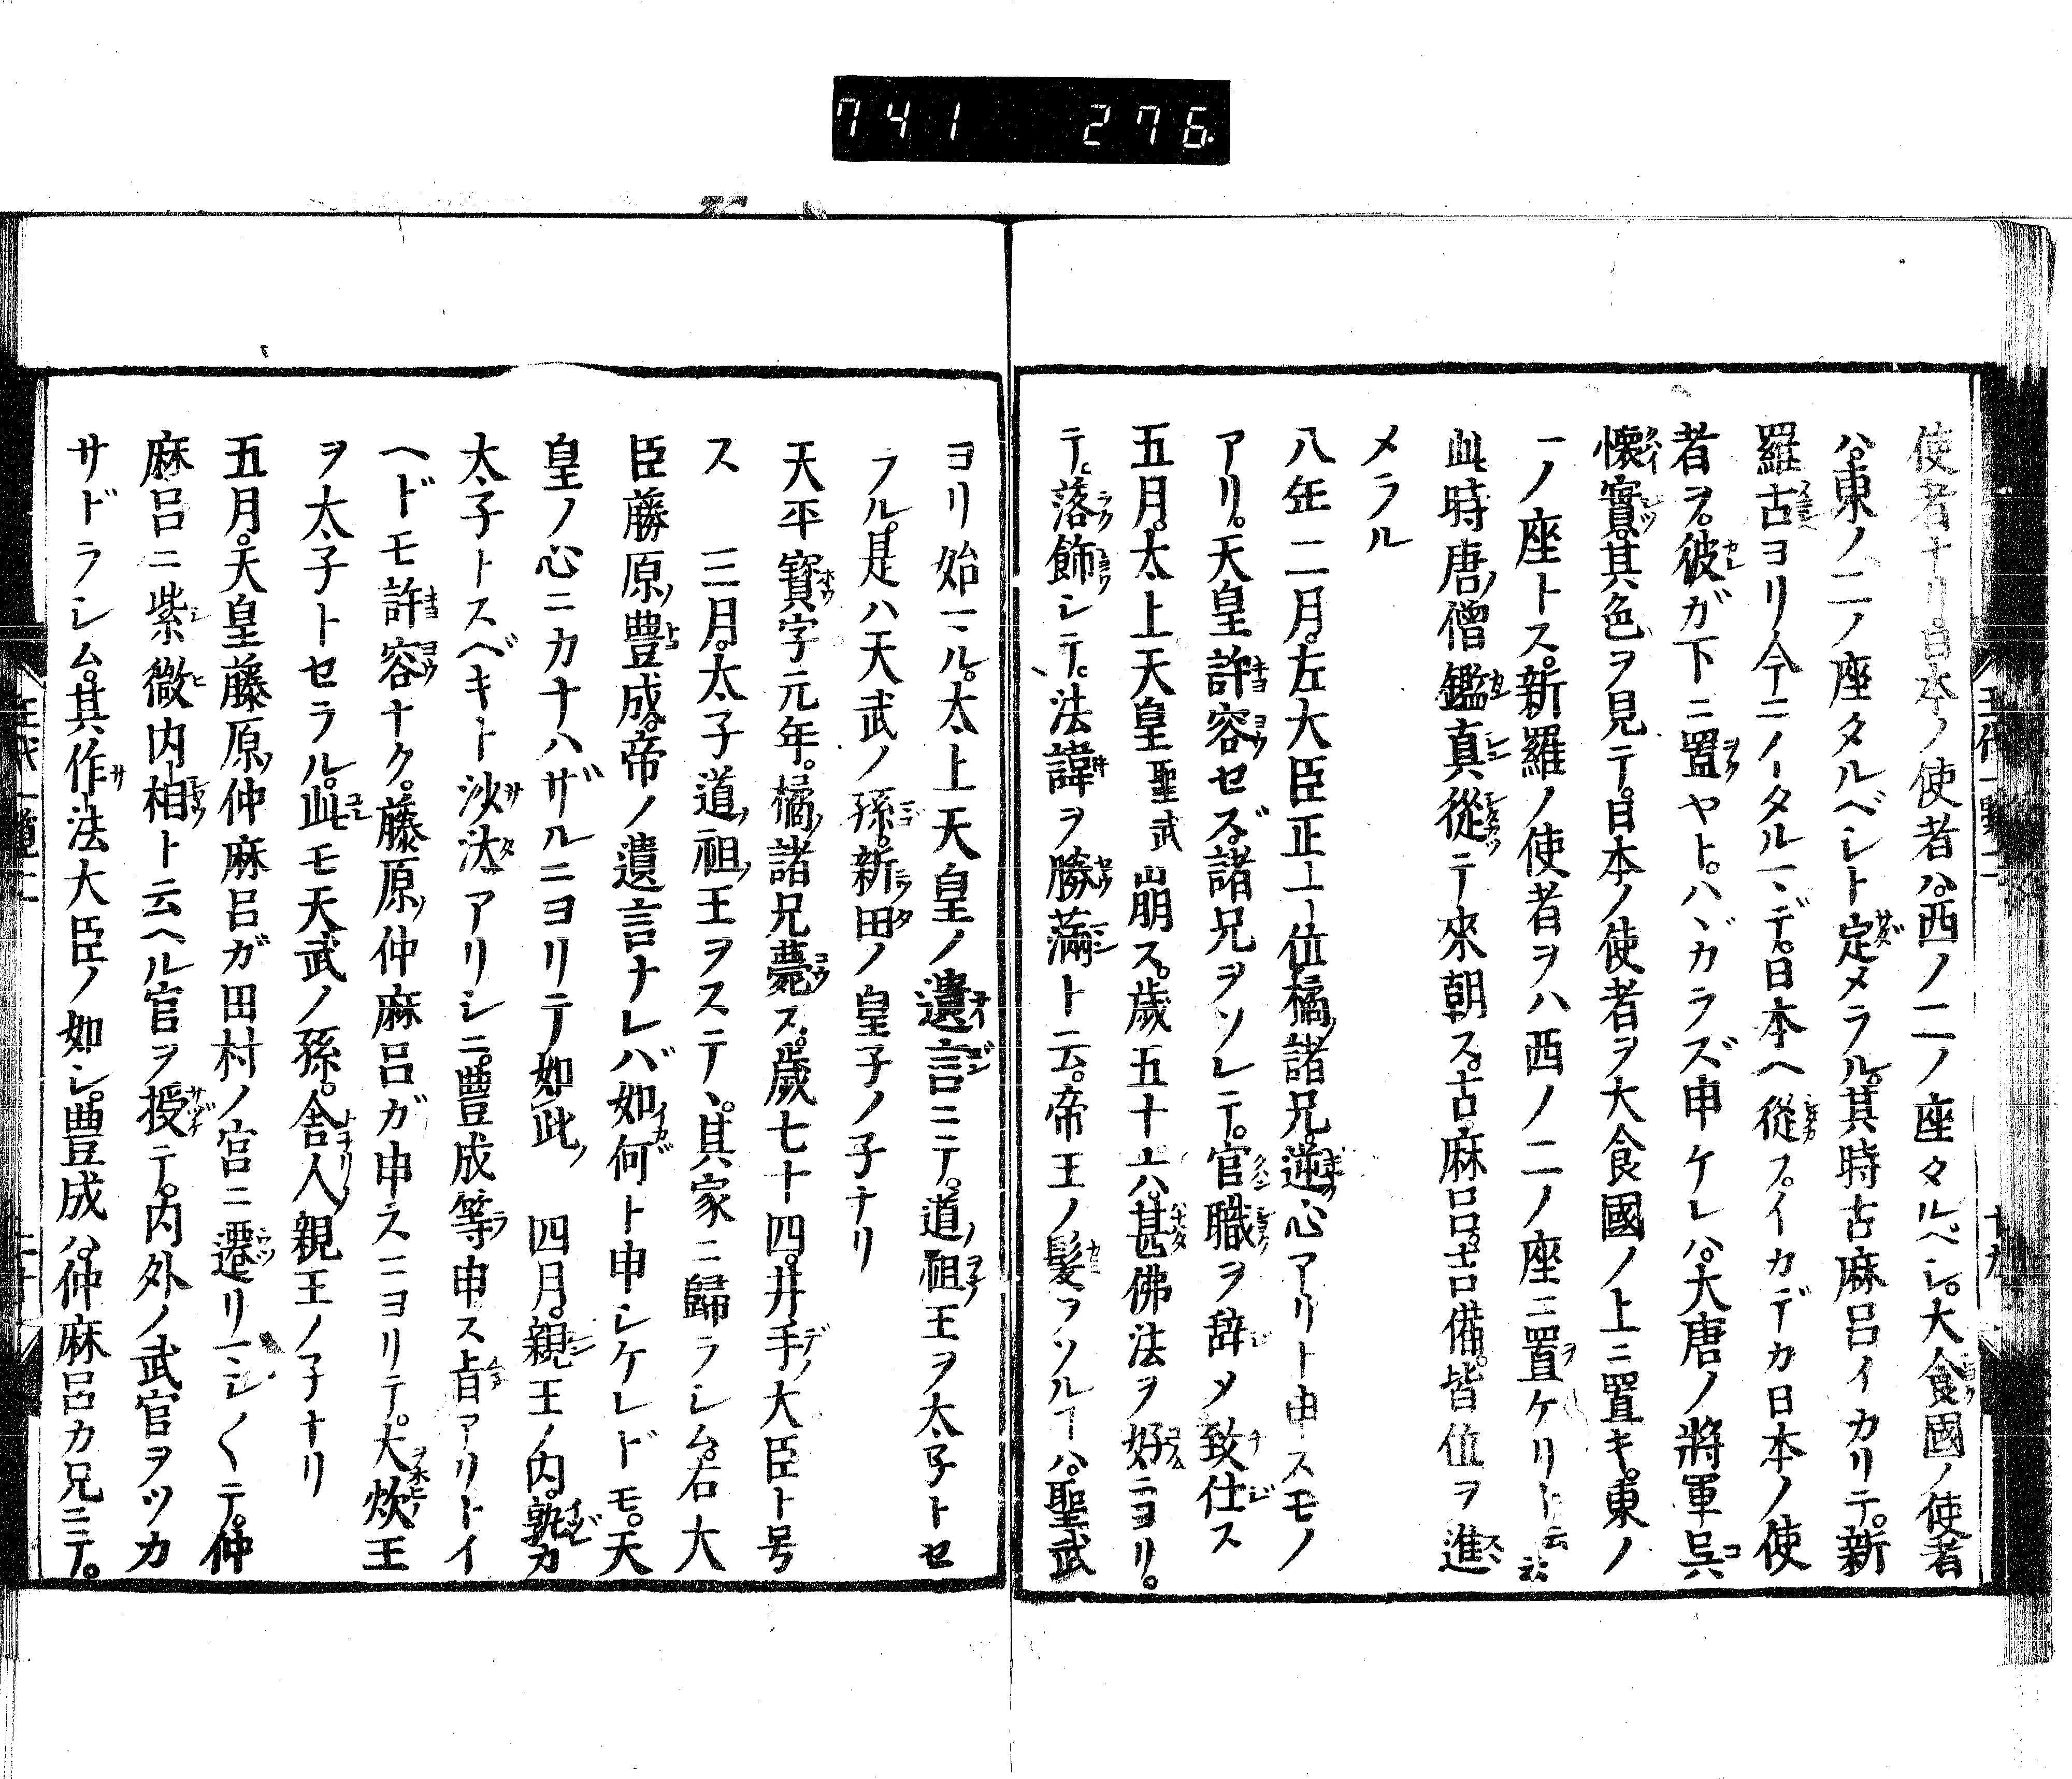 741 276
使者ナリ。日本ノ使者ハ。西ノ二ノ座タルベシ。大食國ノ使者
ハ。東ノ二ノ座タルベシト定メラル。其時古麻呂イカリテ。新
羅古ヨリ今ニイタルマデ。日本ヘ從フ。イカデカ日本ノ使
者ヲ。彼ガ下ニ置ヤト。ハヾカラズ申ケレハ。大唐ノ將軍呉
懷實。其色ヲ見テ。日本ノ使者ヲ大食國ノ上ニ置キ。東ノ
一ノ座トス。新羅ノ使者ヲハ西ノ二ノ座ニ置ケリト云云
此時唐僧鑑真從テ來朝ス。古麻呂。吉備。皆位ヲ進
メラル
八年二月。左大臣正一位橘諸兄。逆心アリト申スモノ
アリ。天皇許容セズ。諸兄ヲソレテ。官職ヲ辞メ致仕ス
五月。太上天皇聖武崩ス。歲五十六。甚佛法ヲ好ニヨリ。
テ。落飾シテ。法諱ヲ勝滿ト云。帝王ノ髮ヲソルヿハ。聖武
ヨリ始マル。太上天皇ノ遺言ニテ。道祖王ヲ太子トセ
ラル。是ハ天武ノ孫。新田ノ皇子ノ子ナリ
天平寶字元年。橘諸兄薨ス。歲七十四。井手大臣ト号
ス 三月。太子道祖王ヲステヽ。其家ニ歸ラシム。右大
臣藤原豊成。帝ノ遺言ナレバ如何ト申シケレドモ。天
皇ノ心ニカナハザルニヨリテ如此 四月。親王ノ内。孰カ
太子トスベキト沙汰アリシニ。豊成等申ス旨アリトイ
ヘドモ許容ナク。藤原仲麻呂ガ申スニヨリテ。大炊王
ヲ太子トセラル。此モ天武ノ孫。舎人親王ノ子ナリ
五月。天皇藤原仲麻呂ガ田村ノ宮ニ遷リマシ〱テ。仲
麻呂ニ紫微内相ト云ヘル官ヲ授テ。内外ノ武官ヲツカ
サドラシム。其作法大臣ノ如シ。豊成ハ。仲麻呂カ兄ニテ。